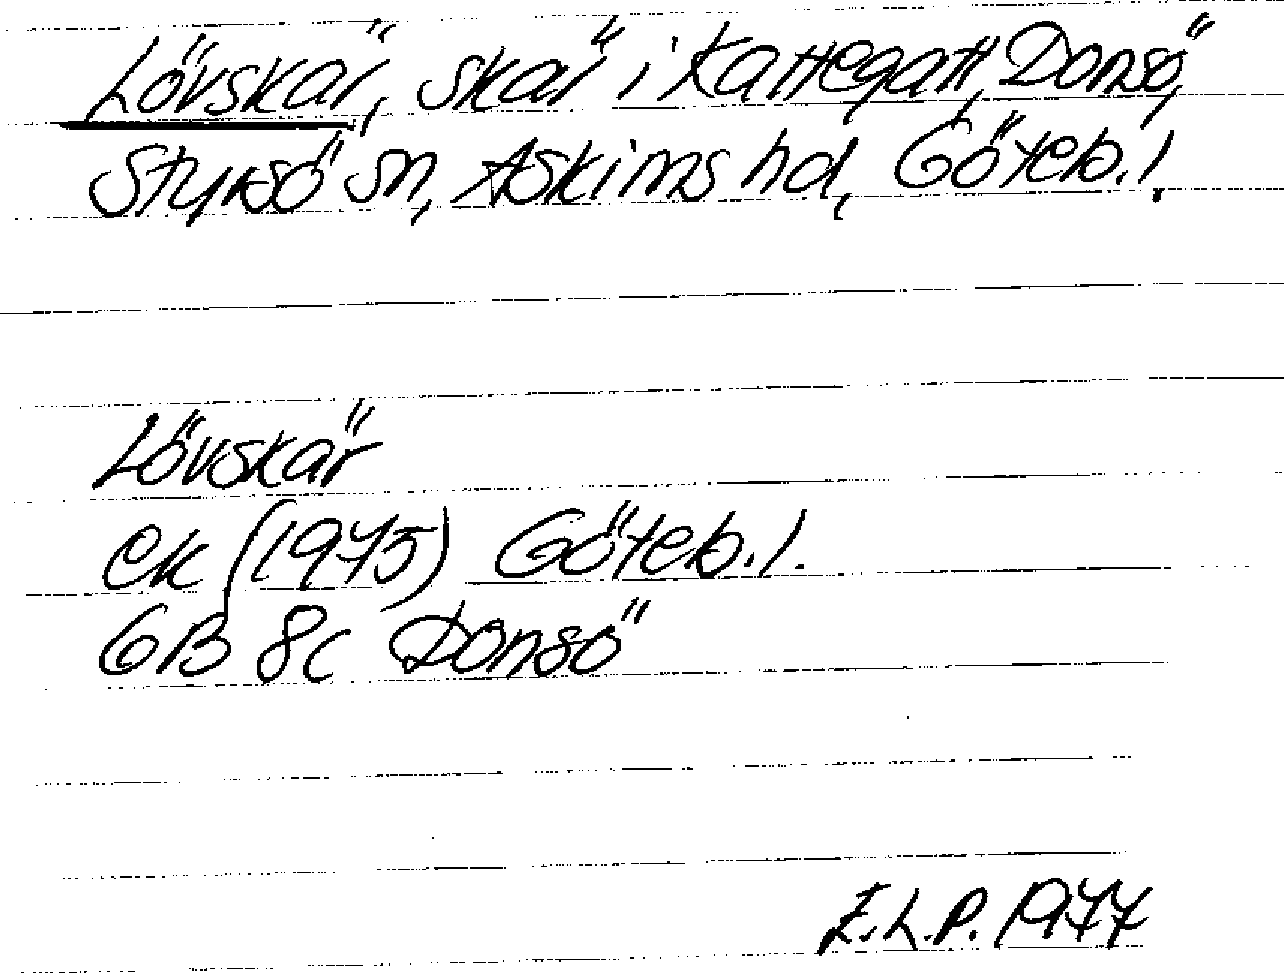 Lövskär, skär i Kattegatt, Donsö,
Styrsö sn, Askims hd, Göteb. l.
Lövskär
ek (1975) Göteb. l.
6B 8c Donsö
E.L.P. 1977